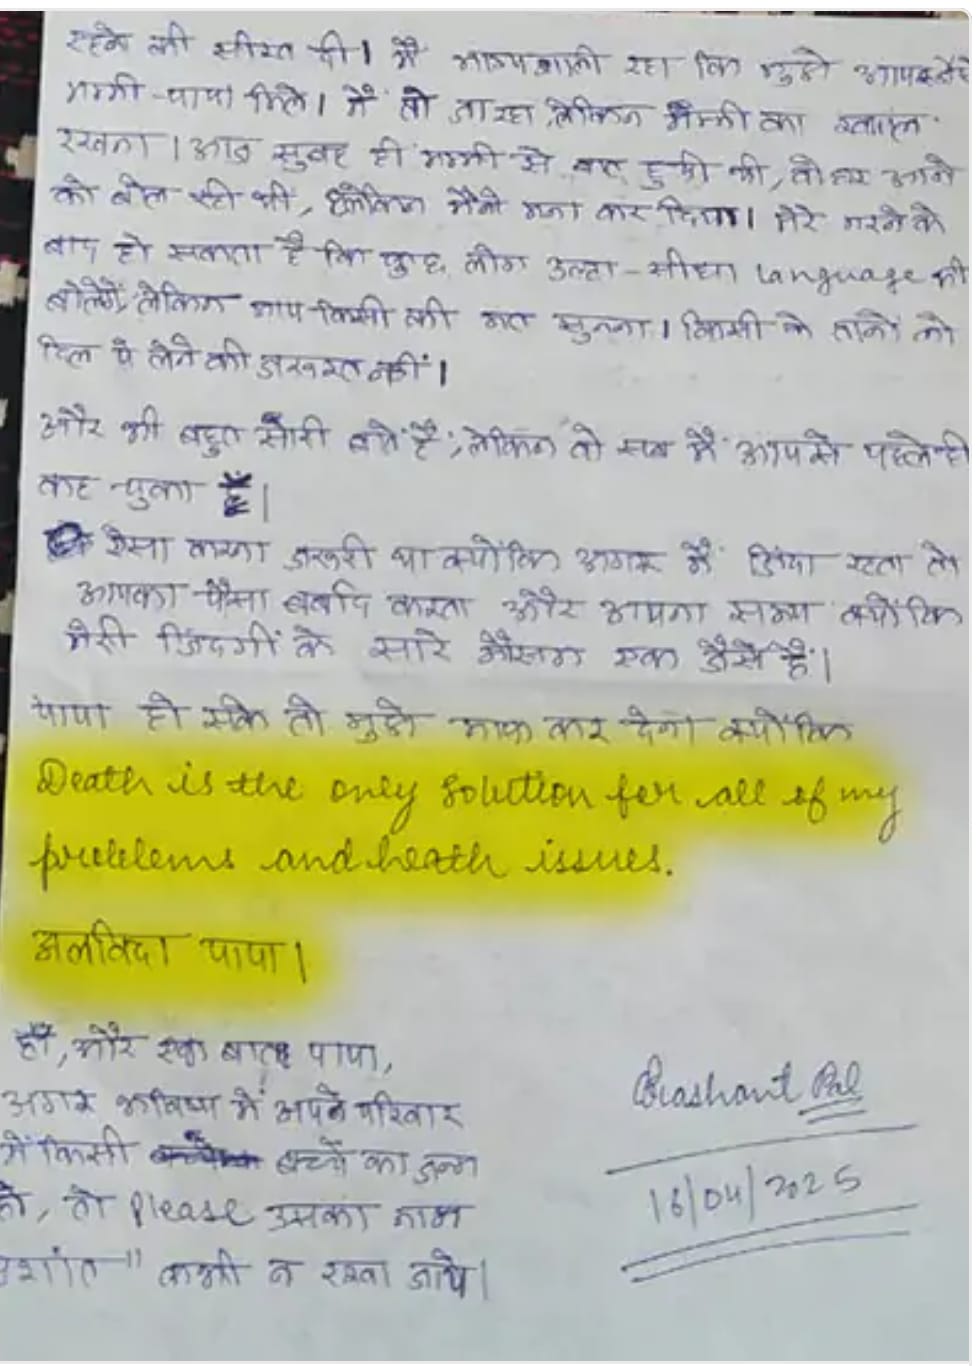 रहने की सीख दी। मैं भाग्यशाली रहा कि मुझे आप जैसे
मम्मी-पापा मिले। मैं तो जा रहा, लेकिन मम्मी का ख्याल
रखना। आज सुबह ही मम्मी से बात हुयी थी, वो घर आने
को बोल रही थी, लेकिन मैंने मना कर दिया। मेरे मरने के
बाद हो सकता है कि कुछ लोग उल्टा-सीधा language भी
बोलेगें, लेकिन आप किसी की मत सुनना। किसी के तानों को
दिल पे लेने की जरूरत नहीं।
और भी बहुत सारी बातें हैं, लेकिन वो सब मैं आपसे पहले ही
कह चुका हूँ।
ऐसा करना जरूरी था क्योंकि अगर मैं जिंदा रहता तो
आपका पैसा बर्बाद करता और अपना समय क्योंकि
मेरी जिंदगी के सारे मौसम एक जैसे हैं।
पापा हो सके तो मुझे माफ कर देना क्योंकि
Death is the only solution for all of my
problems and heath issues.
अलविदा पापा।
हाँ, और एक बात पापा,
अगर भविष्य में अपने परिवार
में किसी बच्चे का जन्म
हो, तो please उसका नाम
शांत" कभी न रखा जाये।
Prashant Pal
16/04/2025